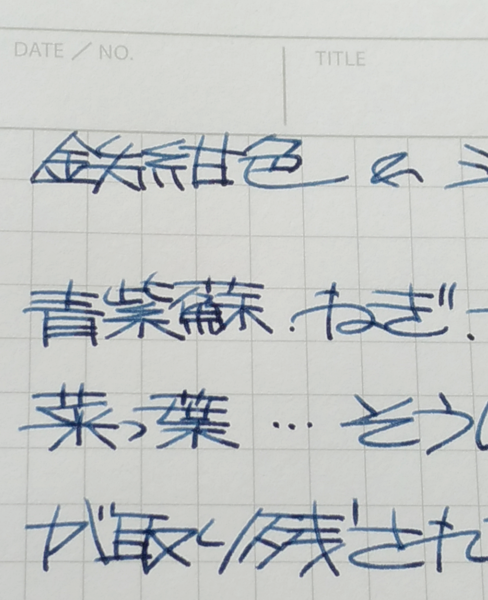 DATE / NO. TITLE
鉄紺色 & ミ
青紫蘇.ねぎ.
菜っ葉…そうし
が取り残され